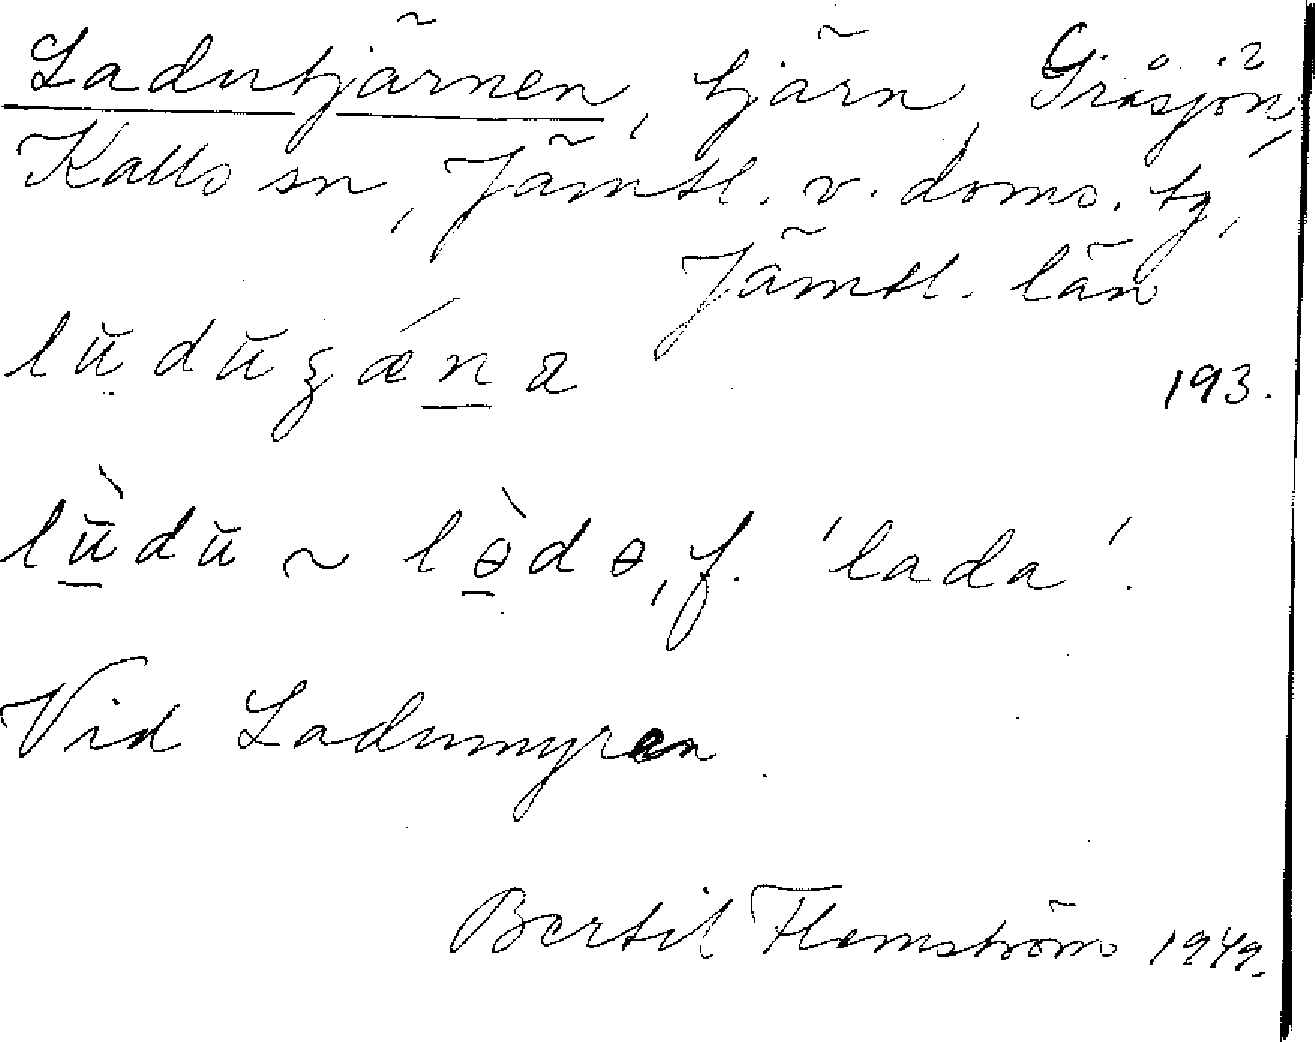 Ladutjärnen, tjärn, Gråsjön,
Kalls sn, Jämtl. v. doms. tg,
Jämtl. län
193.
lŭ̀dŭ ~ l d , f. 'lada'.
Vid Ladumyren.
Bertil Flemström 1949.